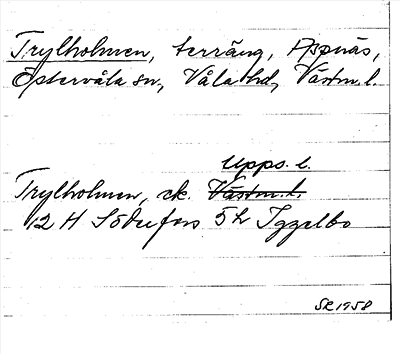 Trylholmen, terräng, Aspnäs,
Östervåla sn, Våla hd, Västm. l.
Upps. l.
Trylholmen, ek. Västm. l.
12 H Söderfors 5h Iggelbo
SR 1958